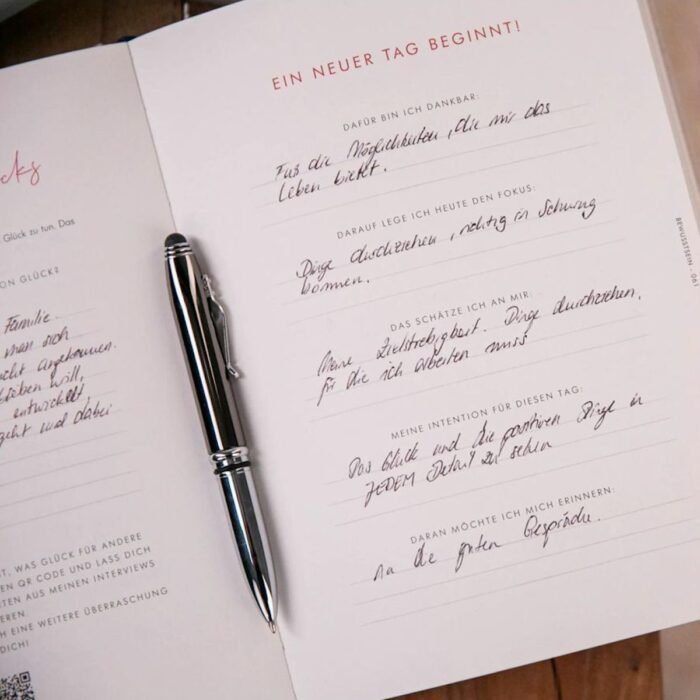 cks
Glück zu tun. Das
ON GLÜCK?
Familie.
man sich
cht angekommen.
eben will,
entwickelt,
geht und dabei
T, WAS GLÜCK FÜR ANDERE
EN QR CODE UND LASS DICH
TEN AUS MEINEN INTERVIEWS
EREN.
H EINE WEITERE ÜBERRASCHUNG
DICH!
EIN NEUER TAG BEGINNT!
DAFÜR BIN ICH DANKBAR:
Für die Möglichkeiten, die mir das
Leben bietet.
DARAUF LEGE ICH HEUTE DEN FOKUS:
Dinge durchziehen, richtig in Schwung
kommen.
DAS SCHÄTZE ICH AN MIR:
Meine Zielstrebigkeit. Dinge durchziehen,
für die ich arbeiten muss
MEINE INTENTION FÜR DIESEN TAG:
Das Glück und die positiven Dinge in
JEDEM Detail zu sehen
DARAN MÖCHTE ICH MICH ERINNERN:
die guten Gespräche.
BEWUSSTSEIN · 061